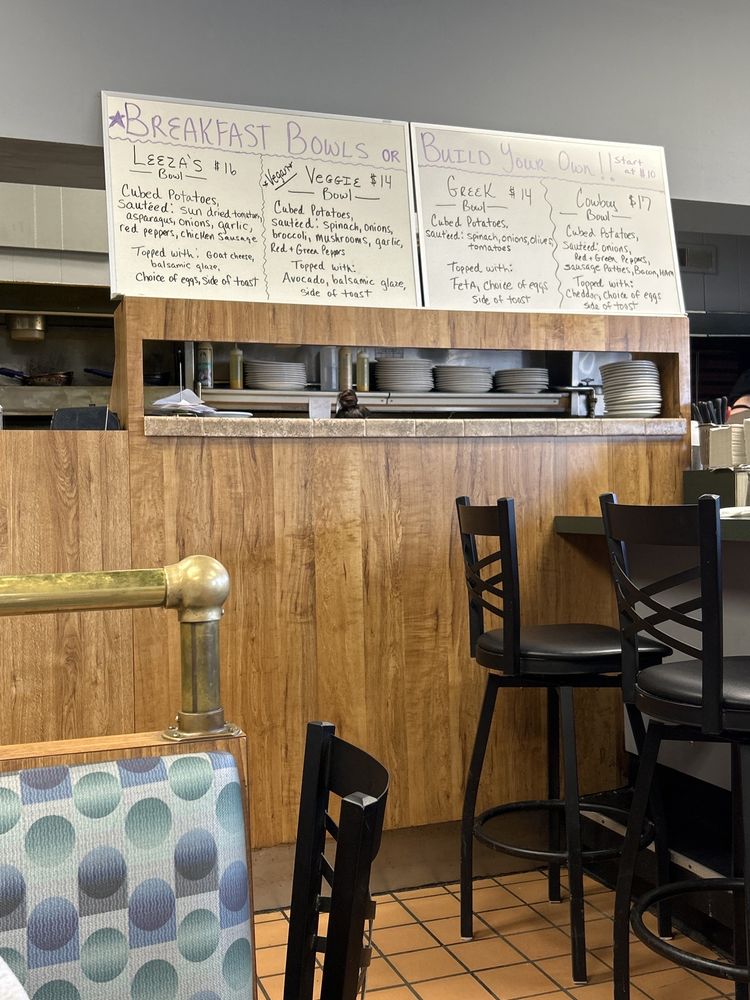 ★BREAKFAST BOWLS OR
LEEZA'S $16
Bowl
Cubed Potatoes,
Sautéed: sun dried-tomatoes,
asparagus, onions, garlic,
red peppers, chicken Sausage
Topped with: Goat cheese,
balsamic glaze,
Choice of eggs, Side of toast
*Vegan*
VEGGIE $14
Bowl
Cubed Potatoes,
Sautéed: spinach, onions,
broccoli, mushrooms, garlic,
Red + Green Peppers
Topped with:
Avocado, balsamic glaze,
side of toast
BUILD YOUR OWN!! Start
at $10
GREEK $14
Bowl
Cubed Potatoes,
sautéed: spinach, onions, olives,
tomatoes
Topped with:
FETA, Choice of eggs
Side of toast
Cowboy $17
Bowl
Cubed Potatoes,
Sautéed: onions,
Red + Green Peppers,
sausage Patties, Bacon, HAM
Topped with:
Cheddar, Choice of eggs
Side of toast